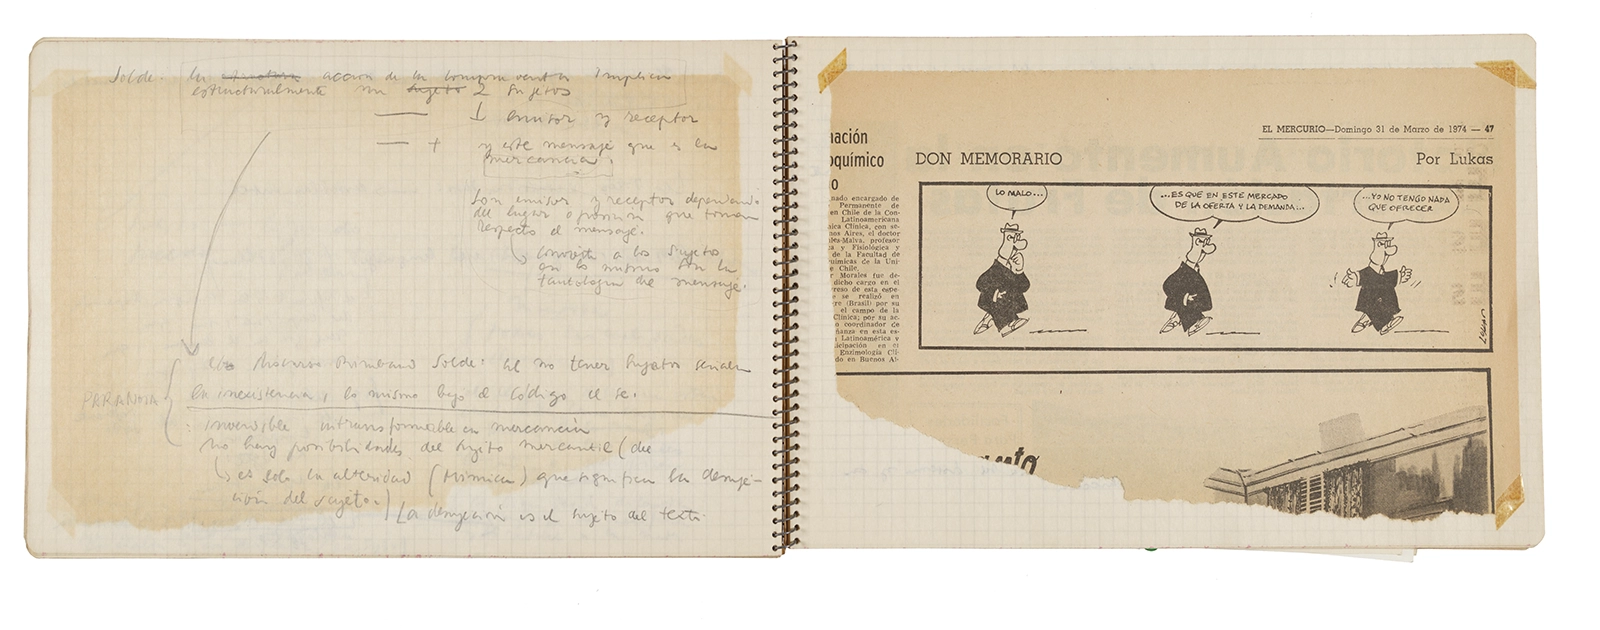 Solde. la estructura acción de la compra venta implica
estructuralmente un sujeto 2 sujetos
emisor y receptor
+ y este mensaje que es la
mercancía.
Son emisor y receptor dependiendo
del lugar o que toman
respecto el mensaje.
convierte a los sujetos
en lo mismo con la
tautología del mensaje.
discurso Solde: al no tener sujetos señalan
la inexistencia, lo mismo bajo el código el se.
PARANOIA
: invendible intransformable en mercancía
no hay posibilidades del sujeto mercantil (
es solo la alteridad (mímica) que significa la desuje-
ción del sujeto.) La desujeción es el sujeto del texto.
EL MERCURIO—Domingo 31 de Marzo de 1974 — 47
DON MEMORARIO Por Lukas
LO MALO...
...ES QUE EN ESTE MERCADO
DE LA OFERTA Y LA DEMANDA...
...YO NO TENGO NADA
QUE OFRECER
LUKAS
nación
oquímico
o
nado encargado de
Permanente de
en Chile de la Con-
Latinoamericana
ica Clínica, con se-
nos Aires, el doctor
les-Malva, profesor
a y Fisiológica y
de la Facultad de
uímicas de la Uni-
e Chile.
r Morales fue de-
dicho cargo en el
reso de esta espe-
e se realizó en
gre (Brasil) por su
el campo de la
Clínica; por su ac-
o coordinador de
ñanza en esta es-
Latinoamérica y
icipación en el
Enzimología Clí-
do en Buenos Ai-